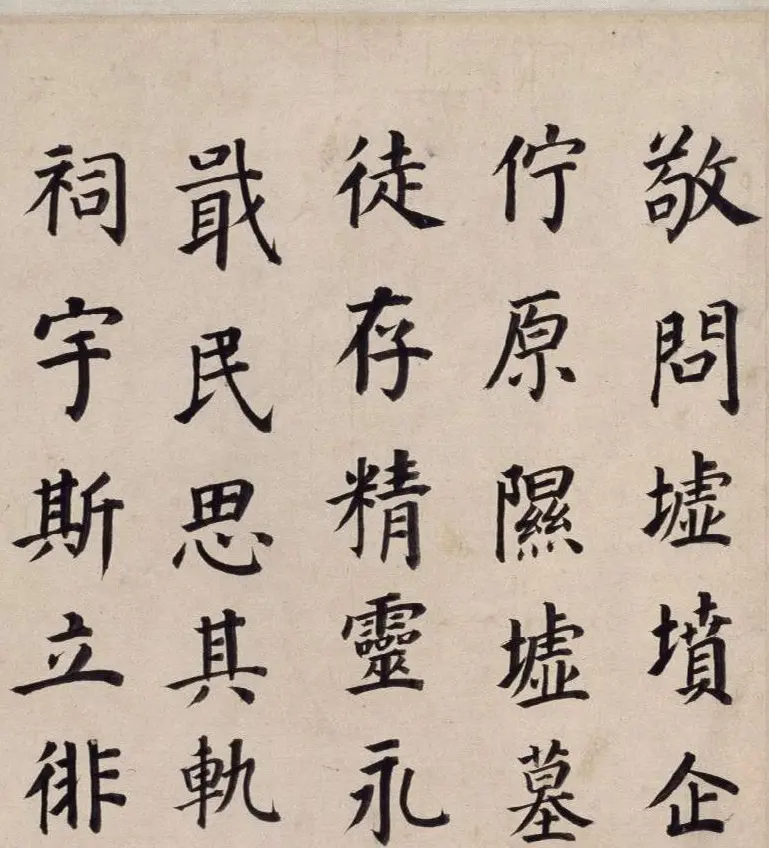 敬問墟墳企
佇原隰墟墓
徒存精靈永
戢民思其軌
祠宇斯立徘